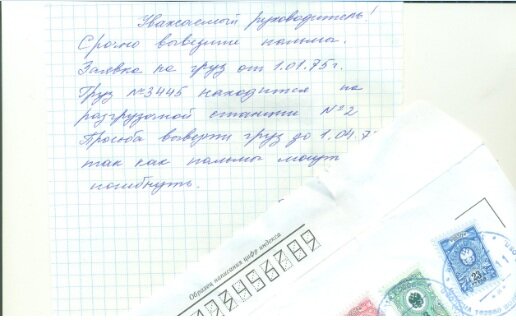 Уважаемый руководитель!
Срочно вывезите пальмы.
Заявка на груз от 1.01.75г.
Груз №3445 находится на
разгрузочной станции №2
Просьба вывезти груз до 1.04.7
так как пальмы могут
погибнуть.
Образец написания цифр индекса